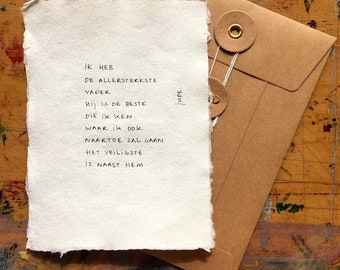 IK HEB
DE ALLERSTERKSTE
VADER
HIJ IS DE BESTE
DIE IK KEN
WAAR IK OOK
NAARTOE ZAL GAAN
HET VEILIGSTE
IS NAAST HEM